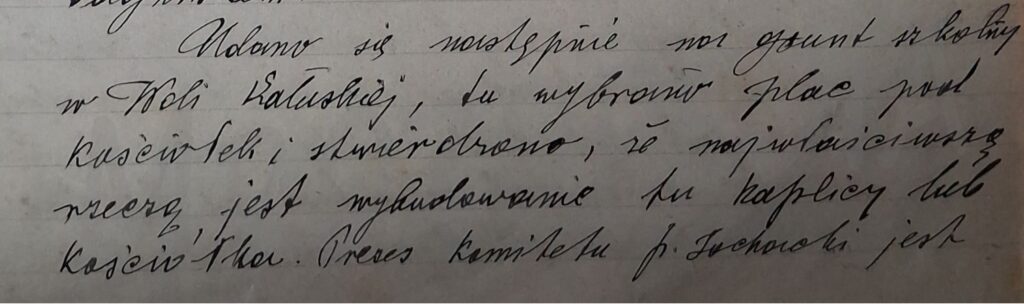 Udano się następnie na grunt szkolny
w Woli Załuskiej, tu wybrano plac pod
kościołek i stwierdzono, że najwłaściwszą
rzeczą jest wybudowanie tu kaplicy lub
kościołka. Prezes Komitetu p. Żochowski jest